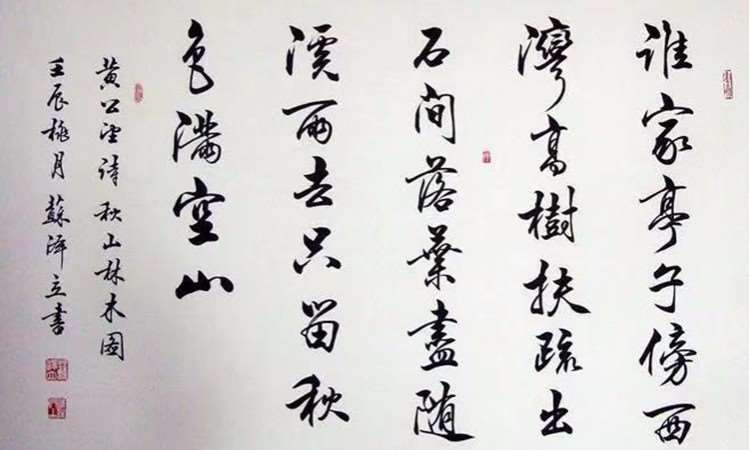 誰家亭子傍西
灣高樹扶疏出
石間落葉盡随
溪雨去只留秋
色滿空山
黄公望詩秋山林木圖
壬辰極月蘇澤立書